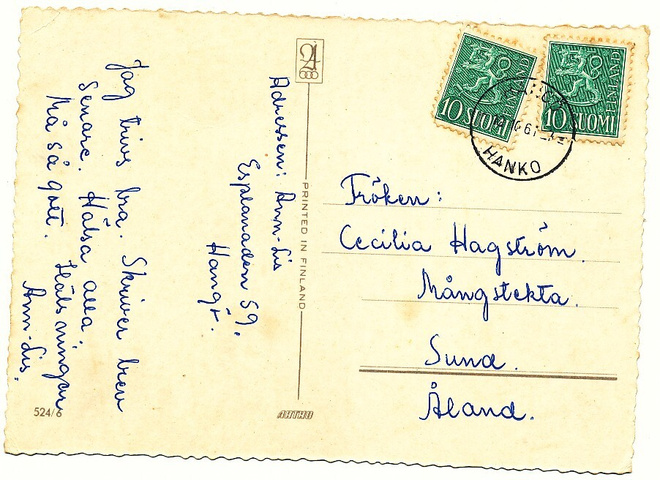 Jag trivs bra. Skriver brev
Senare. Hälsa alla.
Må så gott. Hälsningar
Ann-Lis.
Adressen: Ann-Lis
Esplanaden 59.
Hangö.
524/6
PRINTED IN FINLAND
10 SUOMI
10 SUOMI
HANKO
Fröken:
Cecilia Hagström.
Mångstekta.
Sund.
Åland.